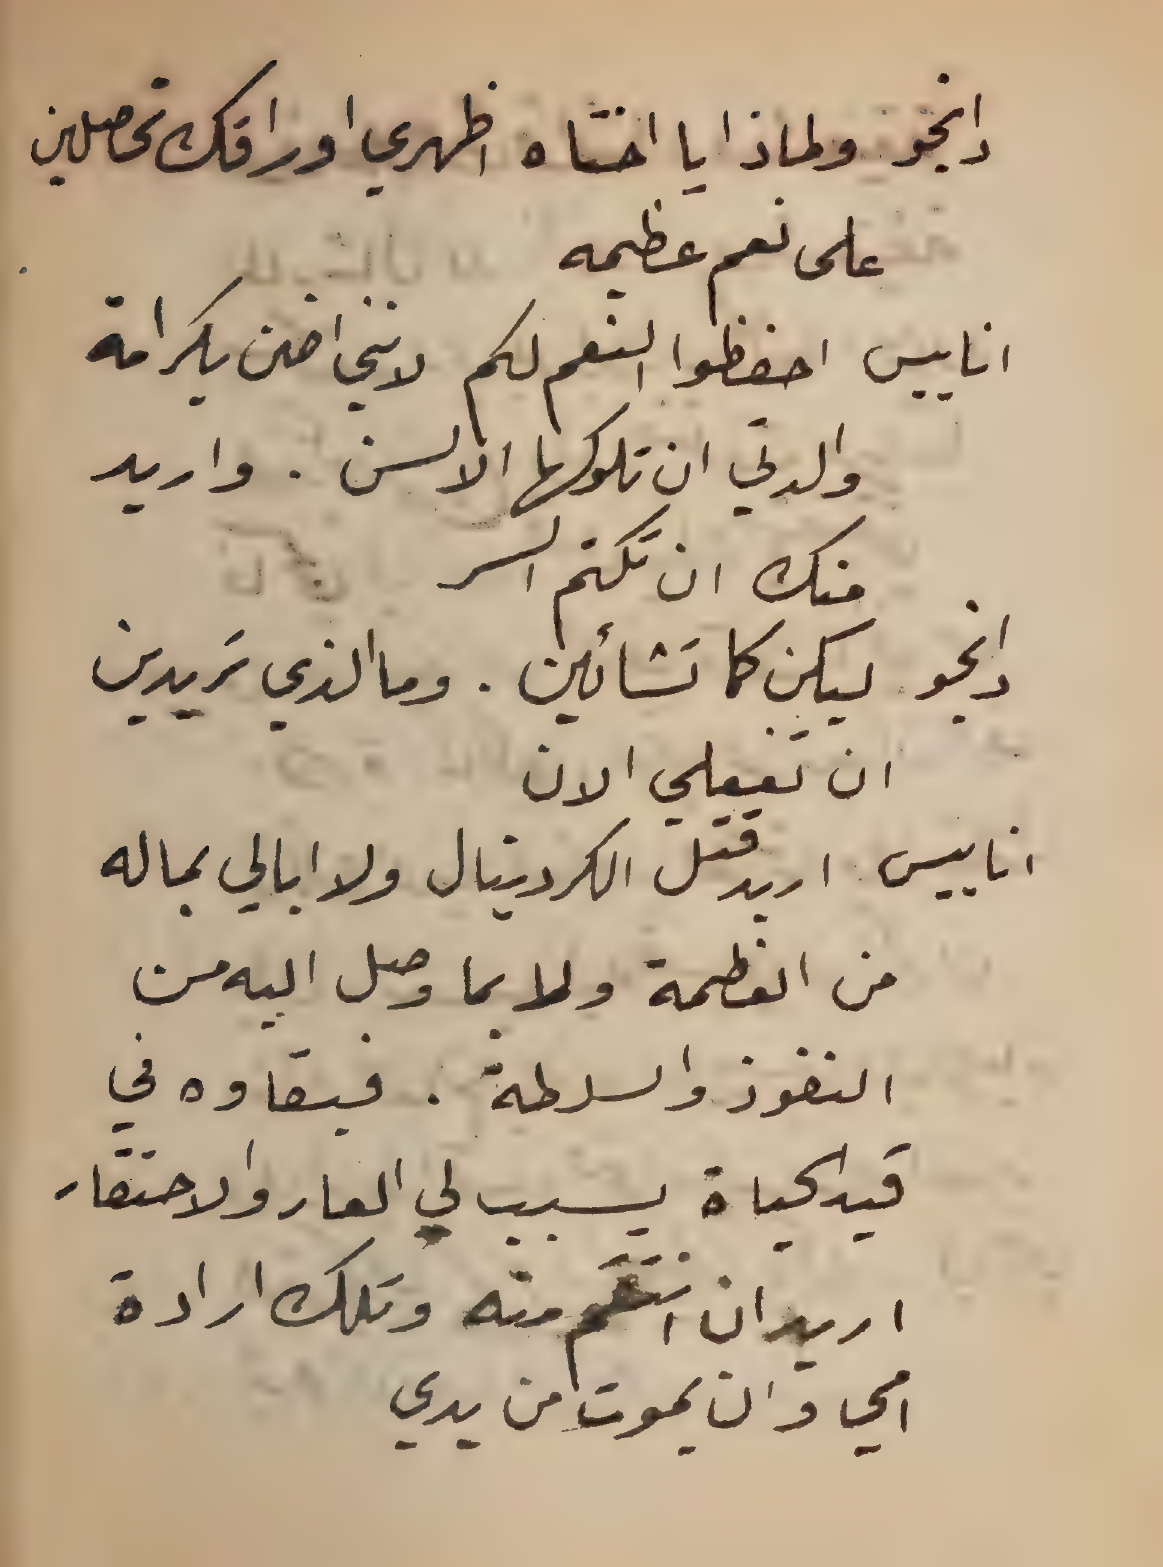 دانجو ولماذا يا اختاه اظهري اوراقك تحصلين
على نعم عظيمه
انابيس احفظوا النعم لكم لانني اضن بكرامة
والدتي ان تلوكها الالسن . واريد
منك ان تكتم السر
دانجو ليكن كما تشائين . وما الذي تريدين
ان تفعلي الان
انابيس اريد قتل الكردينال ولا ابالي بماله
من العظمة ولا بما وصل اليه من
النفوذ والسلطة . فبقاوه في
قيد الحياة يسبب لي العار والاحتقار
اريد ان انتقم منه وتلك ارادة
امي وان يموت من يدي